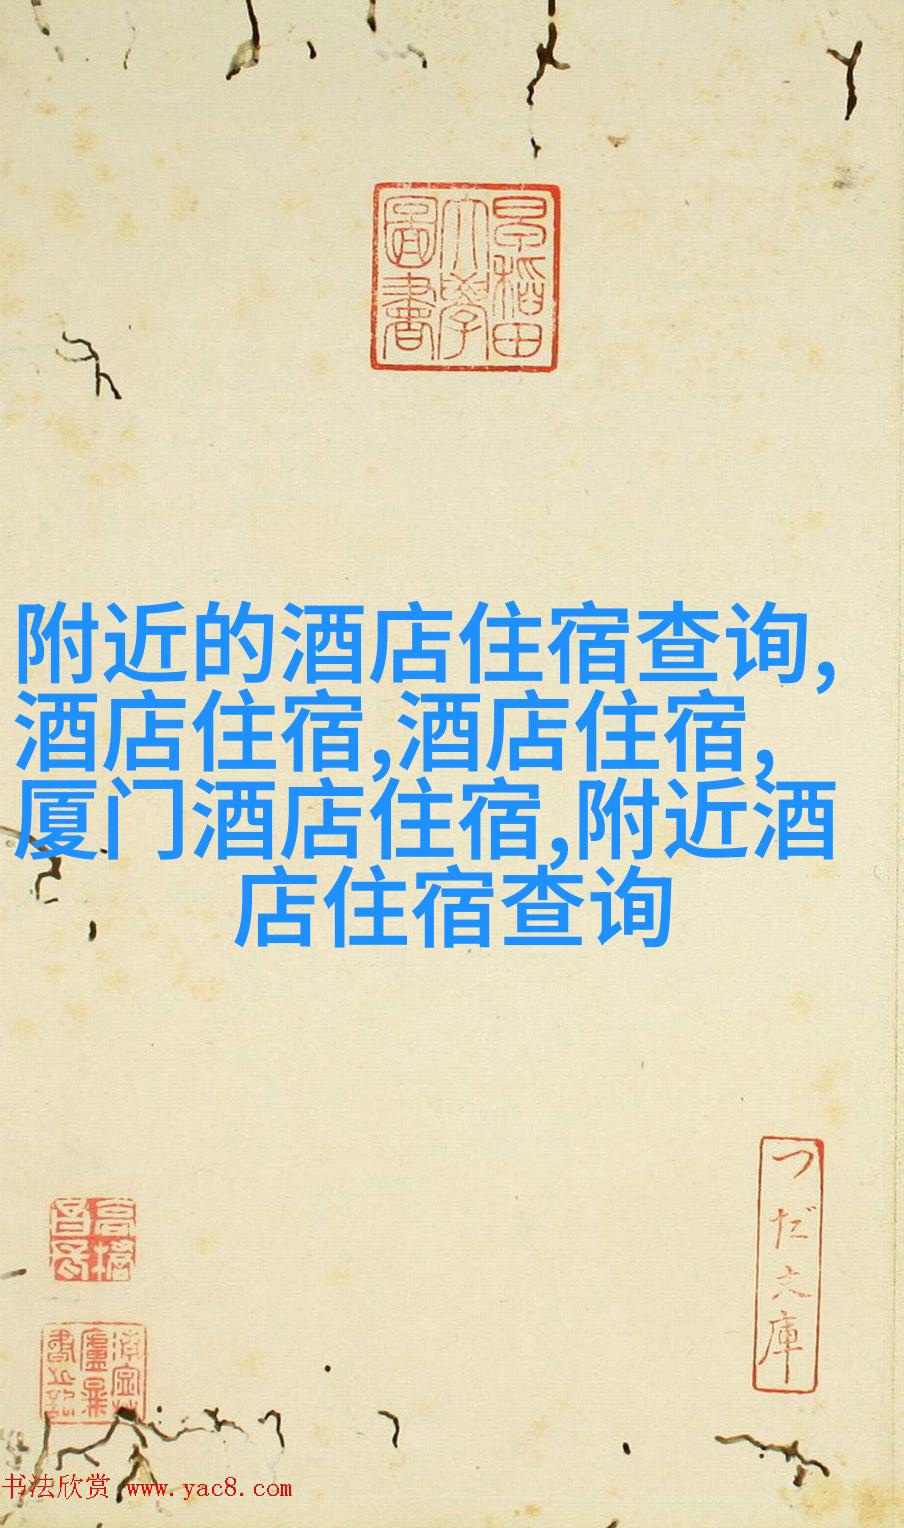 早稻田
大學
圖書
附近的酒店住宿查询,
酒店住宿,酒店住宿,
厦门酒店住宿,附近酒
店住宿查询
つだ文庫
书法欣赏 www.yac8.com